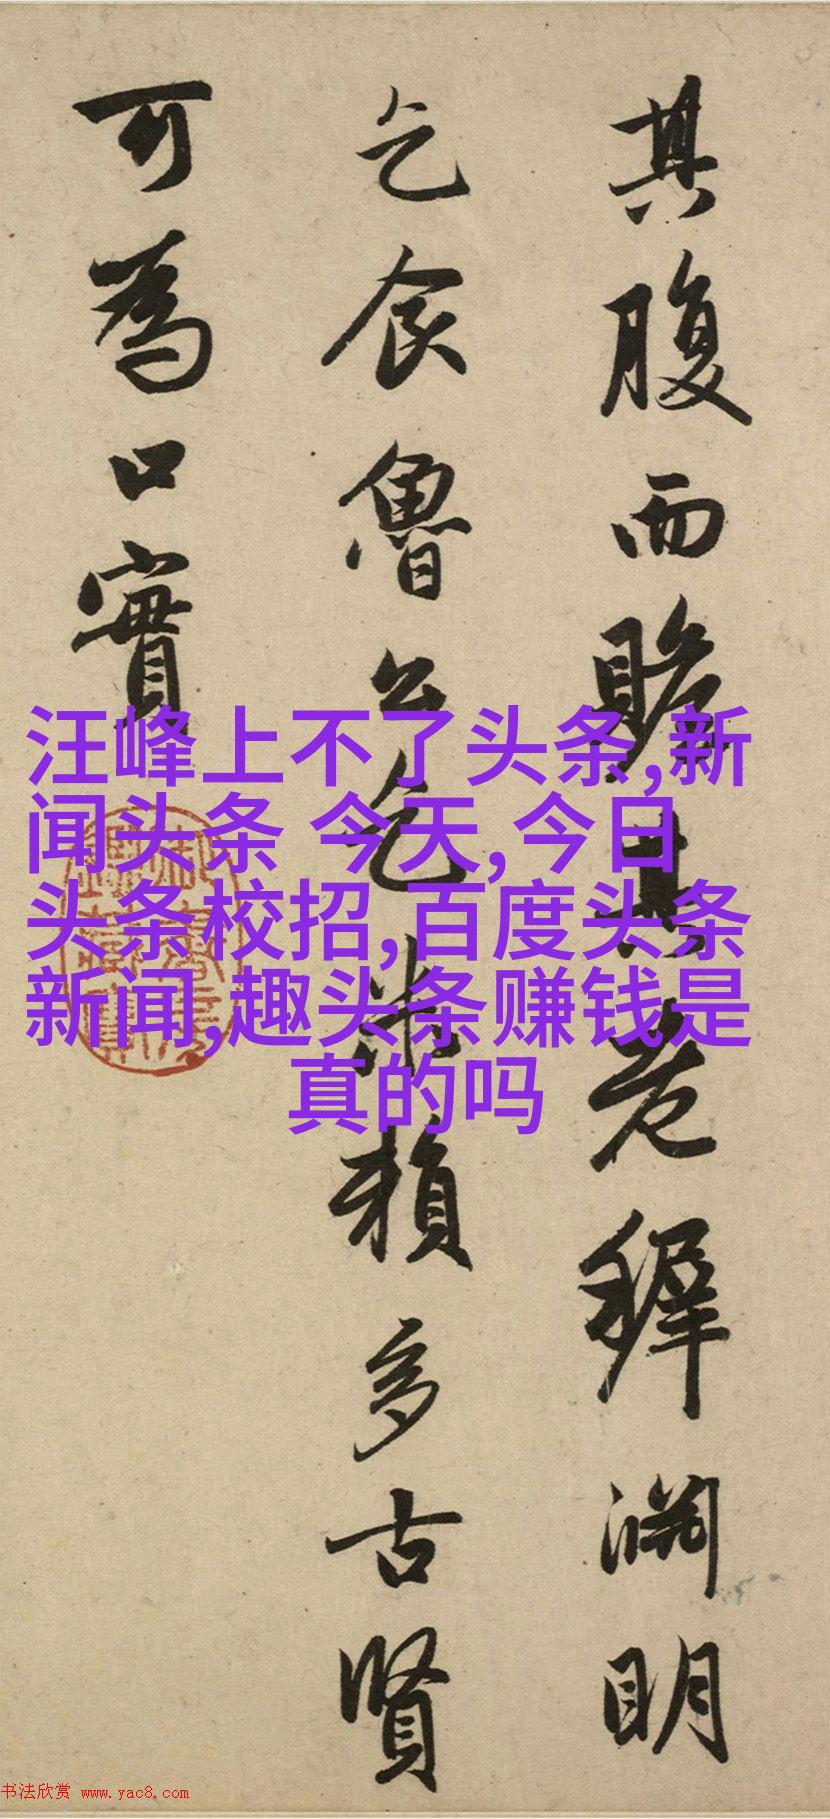 其腹而贍其老穉淵明
乞食魯公乞米賴多古賢
可為口實
汪峰上不了头条,新
闻头条 今天,今日
头条校招,百度头条
新闻,趣头条赚钱是
真的吗
书法欣赏 www.yac8.com